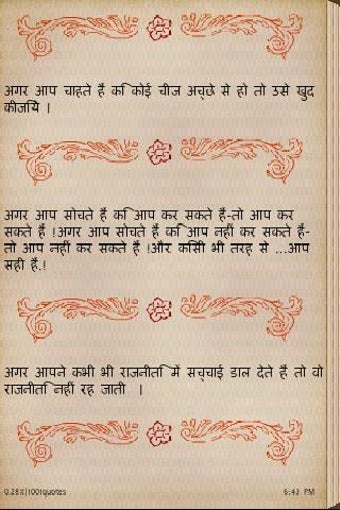 अगर आप चाहते हैं कि कोई चीज अच्छे से हो तो उसे खुद
कीजिये ।
अगर आप सोचते हैं कि आप कर सकते हैं-तो आप कर
सकते हैं !अगर आप सोचते हैं कि आप नहीं कर सकते हैं-
तो आप नहीं कर सकते हैं !और किसी भी तरह से ...आप
सही हैं.!
अगर आपने कभी भी राजनीति में सच्चाई डाल देते हैं तो वो
राजनीति नहीं रह जाती ।
0.28%|1001quotes 6:43 PM